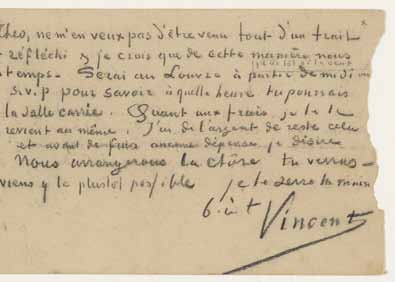 Theo, ne m'en veux pas d'être venu tout d'un trait
réfléchi & je crois que de cette manière nous
temps. Serai au Louvre à partir de midi
s.v.p pour savoir à quelle heure tu pourrais
la salle carrée. Quant aux frais, je te le
revient au même. J'ai de l'argent de reste cela
et avant de faire aucune dépense je désire
Nous arrangerons la chose tu verras –
viens y le plustot possible je te serre la main
t. à t
Vincent